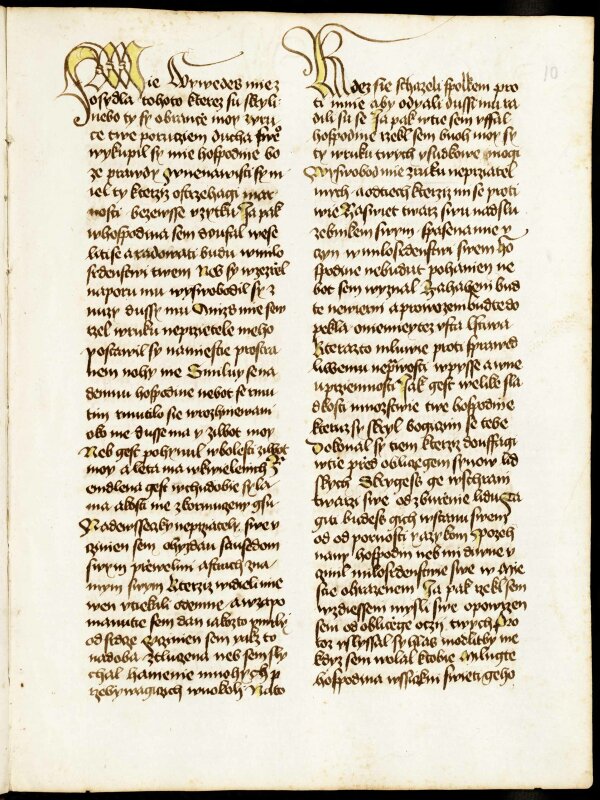 Wie Wywedes mie z
osydla tohoto kterez su skryli
nebo ty sy obrance moy z ruz
ce twe porucziem ducha sweº
wykupil sy mie hospodine bo
ze prawdy Nenawistl sy w
iel ty kterziz ostrzehagi mar
nosti bezewsse vzytku Ja pak
w hospodina sem doufal wese
liti se a radowati budu w milo
srdenstwi twem Neb sy wzezrel
na poru mu wyswobodil sy z
nuzy dussy mu Anizs mie sew
rzel w ruku neprzietele meho
postawil sy na miestie prostra
nem nohy me Smiluy se na
demnu hospodine nebot se rmu
tim rmutilo se w rozhniewani
oko me dusse ma y ziwot moy
Neb gest pohynul w bolesti ziwot
moy a leta ma w kwielenich Z
endlena gest w chudobie sy la
ma a kosti me zkormuczeny gsu
Nadewssecky neprzately swe v
czinien sem ohyzdan sausedom
swym prewelmi a strach zna
mym swym Kterziz widieli mie
wen vtiekali odemne a w zapo
manutie sem dan iakozto mrtwy
od srdcze Vczinien sem yako to
nadoba ztluczena neb sem sly
chal hanienie mnohych p
rzebywagiczich w uokoli Na to
Kdez sie schazeli spolkem pro
ti mnie aby odyali dussi mu ra
dili su se Ja pak w tie sem vffal
hospodine rzekl sem buoh moy sy
ty w ruku twych vsudkowe mogi
Wyswobod mie z ruku neprziatel
mych a od tiech kterziz mi se proti
wie Zaswiet twarz swu nad slu
zebnikem swym spasena mie v
czyn w milosrdenstwi swem Ho
spodine nebudut pohanien ne
bot sem wzywal Zahabeni bud
te newierni a prowozeni budte do
pekla oniemieytez vsta lstiwa
Kterazto mluwie proti sprawed
liwemu neprawost w pysse a w ne
uprziemnosti Jak gest welike sla
dkosti mnozstwie twe hospodine
kteruz sy skryl bogiczim se tebe
Dokonal sy tiem kterziz douffagi
w tie przed obliczegem synow lid
skych Skrygess ge w schrani
twarzi swe od zburzenie lidu Za
giti budess gich w stanu swem
od odpornosti yazykow Pozeh
nany hospodin neb mi diwne v
czinil milosrdenstwie swe w mie
stie ohrazenem Ja pak rzekl sem
w zdiessem mysli swe opowrzen
sem od obliczege oczi twych Pro
toz vslyssal sy hlas modlitby me
kdyz sem wolal k tobie Milugte
hospodina wssickni swieti geho
10